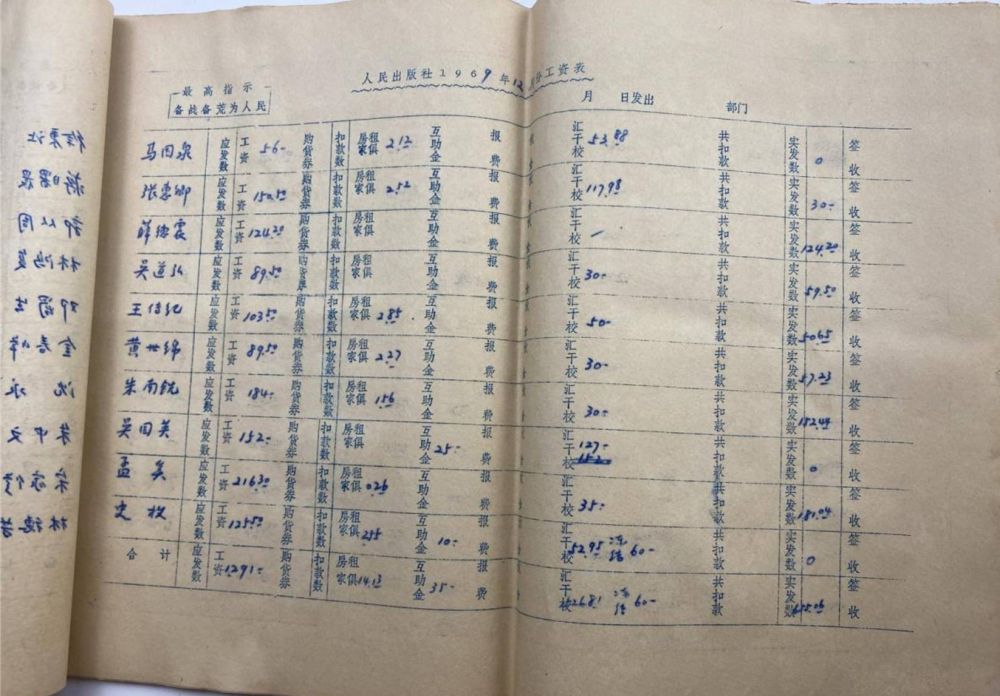 最高指示
备战备荒为人民
人民出版社1969年12月份工资表
月 日发出 部门
马向泉 应发数 工资 56- 购货券 扣款数 房租家俱 2.12 互助金 报费 汇干校 53.88 共扣款 实发数 0 签收
张惠卿 应发数 工资 150.50 购货券 扣款数 房租家俱 2.52 互助金 报费 汇干校 117.98 共扣款 实发数 30- 签收
薛德震 应发数 工资 124.20 购货券 扣款数 房租家俱 互助金 报费 汇干校 - 共扣款 实发数 124.20 签收
吴道弘 应发数 工资 89.50 购货券 扣款数 房租家俱 互助金 报费 汇干校 30- 共扣款 实发数 59.50 签收
王传纪 应发数 工资 103.50 购货券 扣款数 房租家俱 2.85 互助金 报费 汇干校 50- 共扣款 实发数 50.65 签收
黄世绵 应发数 工资 89.50 购货券 扣款数 房租家俱 2.27 互助金 报费 汇干校 30- 共扣款 实发数 57.23 签收
朱南铣 应发数 工资 184- 购货券 扣款数 房租家俱 1.56 互助金 报费 汇干校 30- 共扣款 实发数 152.44 签收
吴国英 应发数 工资 152- 购货券 扣款数 房租家俱 互助金 25- 报费 汇干校 127- 共扣款 实发数 0 签收
孟奚 应发数 工资 216.30 购货券 扣款数 房租家俱 0.26 互助金 报费 汇干校 35- 共扣款 实发数 181.04 签收
史枚 应发数 工资 125.50 购货券 扣款数 房租家俱 2.55 互助金 10- 报费 汇干校 52.95 冻结 60- 共扣款 实发数 0 签收
合计 应发数 工资 1291- 购货券 扣款数 房租家俱 14.13 互助金 35- 报费 汇干校 526.81 冻结 60- 共扣款 实发数 655.06 签收